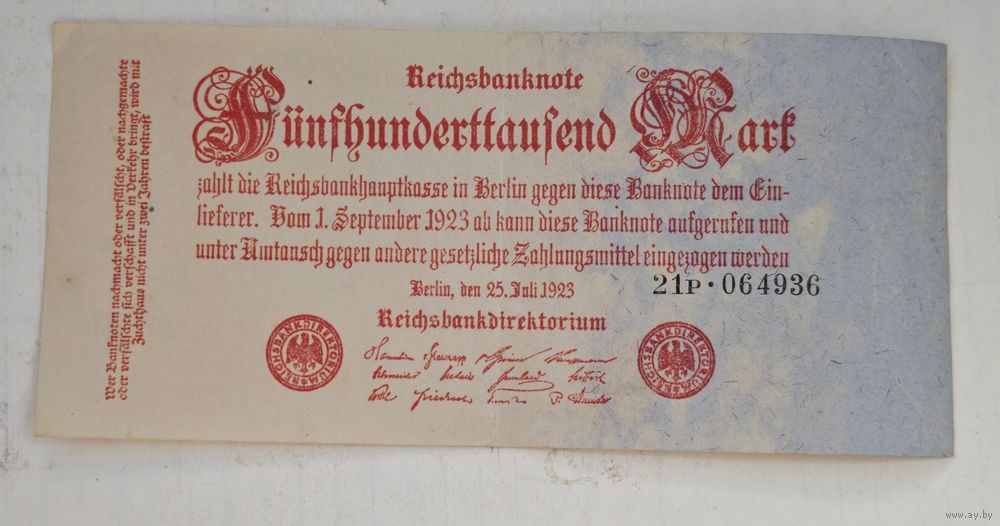 Reichsbanknote
Fünfhunderttausend Mark
zahlt die Reichsbankhauptkasse in Berlin gegen diese Banknote dem Ein-
lieferer. Vom 1. September 1923 ab kann diese Banknote aufgerufen und
unter Umtausch gegen andere gesetzliche Zahlungsmittel eingezogen werden
Berlin, den 25. Juli 1923
21P·064936
Reichsbankdirektorium
REICHSBANKDIREKTORIUM
REICHSBANKDIREKTORIUM
Wer Banknoten nachmacht oder verfälscht, oder nachgemachte
oder verfälschte sich verschafft und in Verkehr bringt, wird mit
Zuchthaus nicht unter zwei Jahren bestraft
www.ay.by